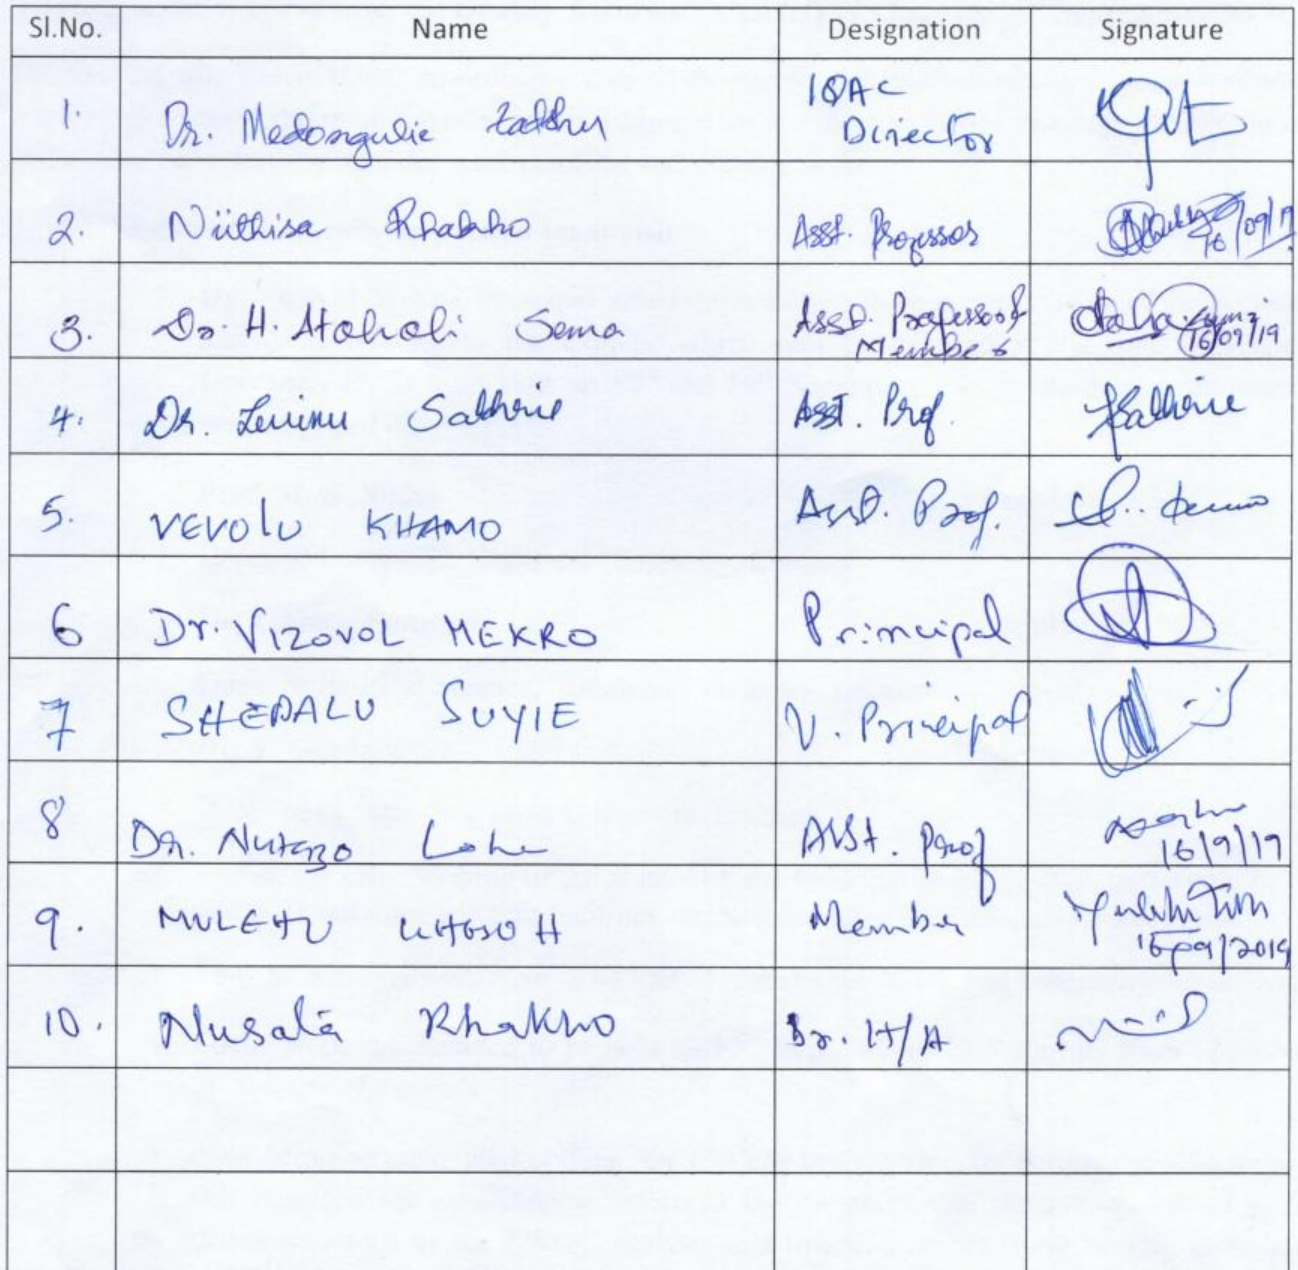 Sl.No. Name Designation Signature
1. Dr. Medongulie Zatshu IQAC
Director
2. Nüthisa Rhakho Asst. Professor 16/09/19
3. Dr. H. Atoholi Sema Asst. Professor &
Member 16/09/19
4. Dr. Sakhrie Asst. Prof. Sakhrie
5. VEVOLU KHAMO Asst. Prof.
6 Dr. VIZOVOL MEKRO Principal
7 SHEPALU SUYIE V. Principal
8 Dr. Nutazo Lohe Asst. Prof
16/9/19
9. MULEHU Member
16/09/2019
10. Nusala Rhakho Sr. H/A